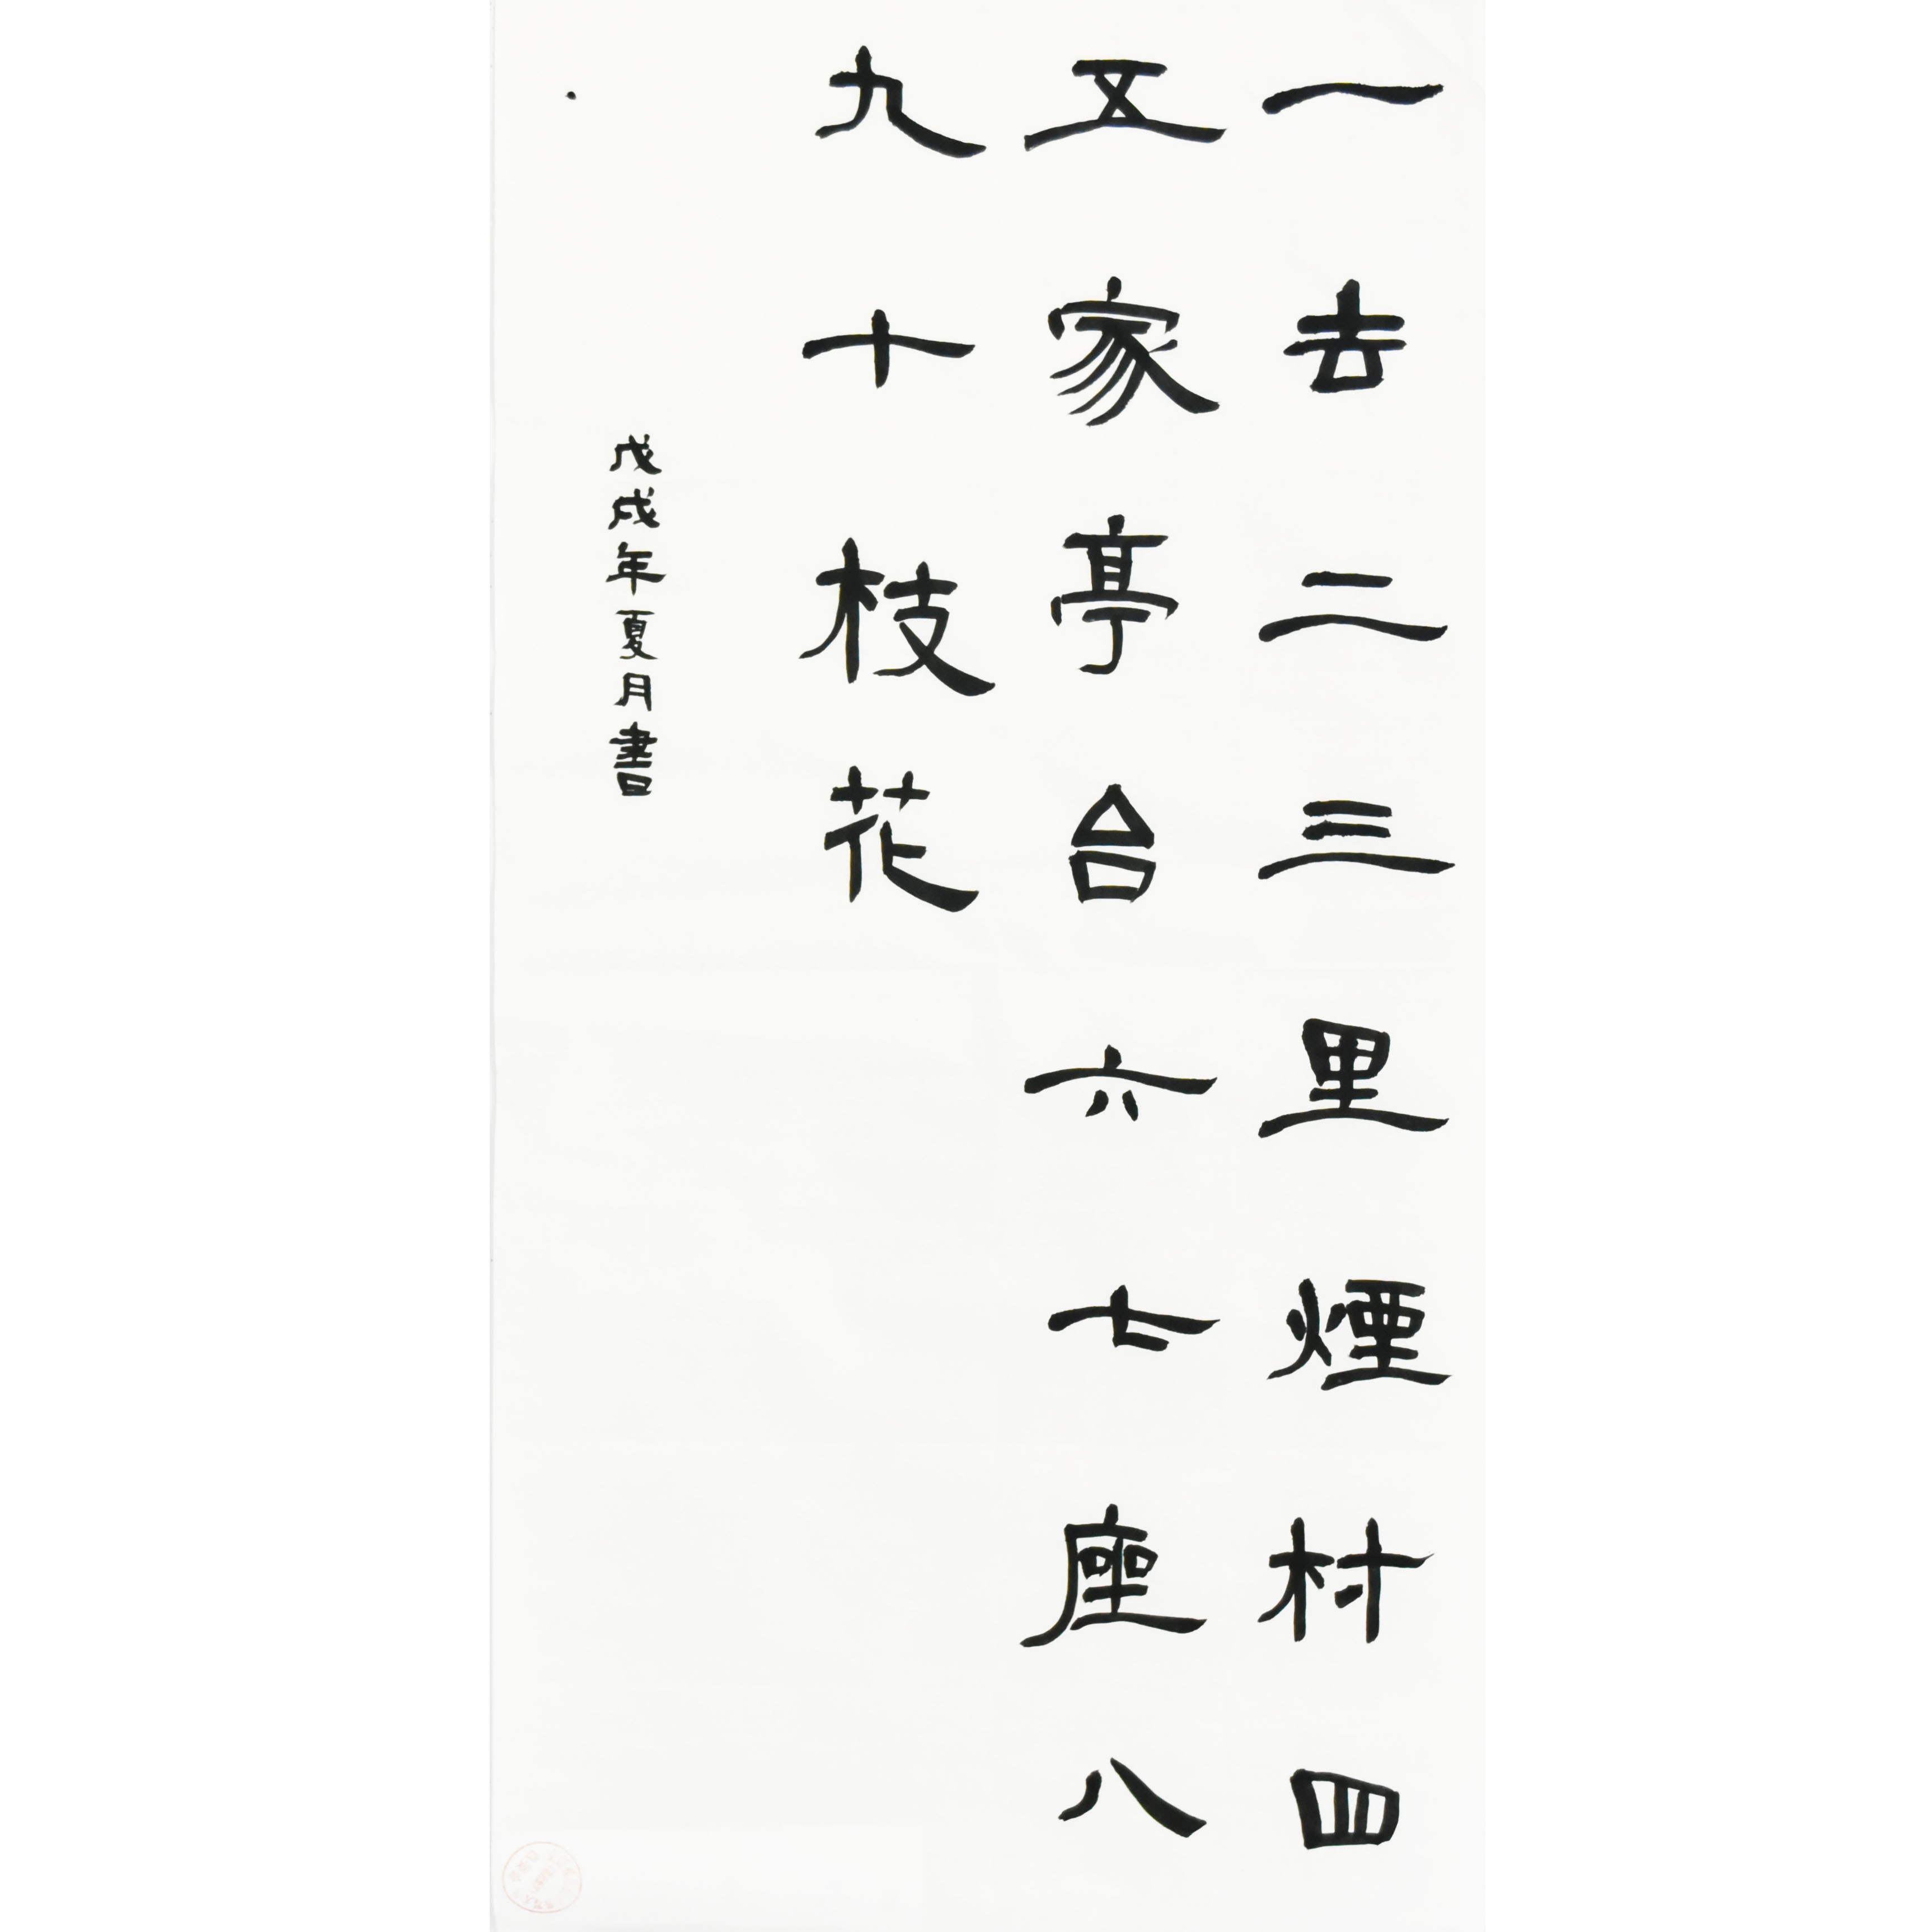 一去二三里煙村四
五家亭台六七座八
九十枝花
戊戌年夏月書